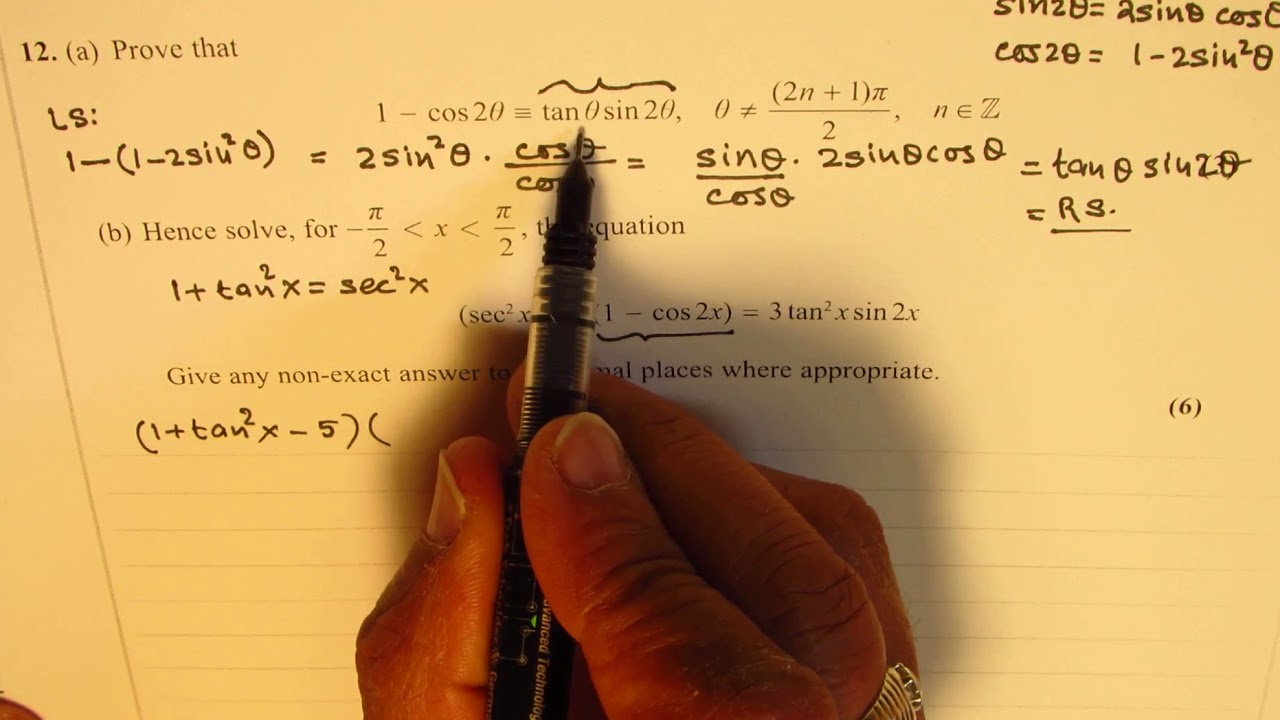 sin2θ = 2sinθ cosθ
cos2θ = 1 - 2sin²θ
12. (a) Prove that
1 − cos 2θ ≡ tan θ sin 2θ, θ ≠ (2n + 1)π / 2, n ∈ ℤ
LS:
1 - (1 - 2sin²θ) = 2sin²θ · cosθ = sinθ/cosθ · 2sinθcosθ = tanθ sin2θ
= RS.
(b) Hence solve, for −π/2 < x < π/2, equation
1 + tan²x = sec²x
(sec² x (1 − cos 2x) = 3 tan² x sin 2x
Give any non-exact answer to places where appropriate.
(6)
(1 + tan²x - 5)(
Advanced Technolo